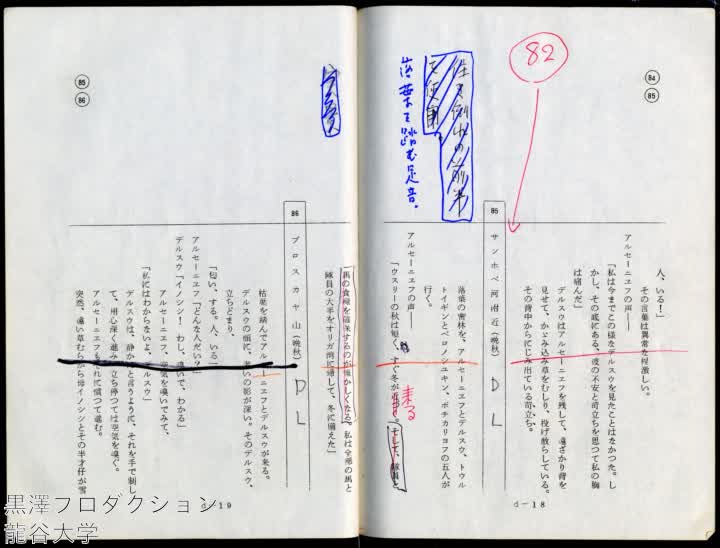 84
85
82
人、いる！」
その言葉は異常な程激しい。
アルセーニエフの声――
「私は今までこの様なデルスウを見たことはなかった。し
かし、その底にある、彼の不安と苛立ちを思って私の胸
は痛んだ」
デルスウはアルセーニエフを残して、遠ざかり背を
見せて、かゞみ込み草をむしり、投げ散らしている。
その背中からにじみ出ている苛立ち。
85 サンホベ河附近（晩秋）
D L
生き倒れの前半
を使用
落葉を踏む足音。
落葉の密林を、アルセーニエフとデルスウ、トウル
トイギンとベロノジユキン、ボチカリヨフの五人が
行く。
アルセーニエフの声――
「ウスリーの秋は短く、すぐ冬が近づく。そして、隊員と
来る
d－18
85
86
馬の食糧を確保するのが難かしくなる。私は全部の馬と
隊員の大半をオリガ湾に通して、冬に備えた」
86 プロスカヤ山（晩秋）
D L
枯葉を踏んでアルセーニエフとデルスウが来る。
デルスウの頬に、老いの影が深い。そのデルスウ、
立ちどまり、
「匂い、する。人、いる」
アルセーニエフ「どんな人だい？」
デルスウ「イノシシ！ わし、嗅いで、わかる」
アルセーニエフ、空気を嗅いでみて、
「私にはわからないよ、デルスウ」
デルスウは、静かにと言うように、それを手で制し
て、用心深く進み、立ち停っては空気を嗅ぐ。
アルセーニエフもそれに慣って進む。
突然、遠い草むらから母イノシシとその半才仔が雪
d－19
黒澤プロダクション
龍谷大学